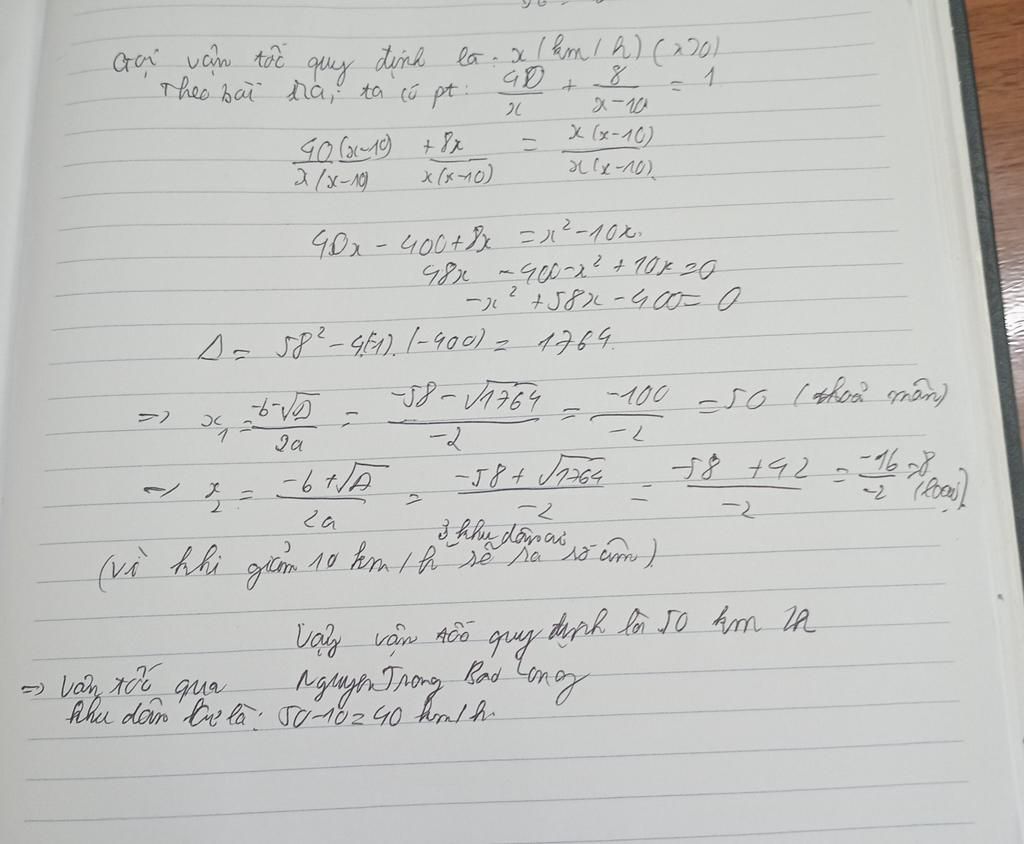 Gọi vận tốc quy định là: x (km/h) (x>0)
Theo bài ra, ta có pt: 40/x + 8/(x-10) = 1
40(x-10)/x(x-10) + 8x/x(x-10) = x(x-10)/x(x-10)
40x - 400 + 8x = x² - 10x.
48x - 400 - x² + 10x = 0
-x² + 58x - 400 = 0
Δ = 58² - 4(-1).(-400) = 1764
=> x₁ = (-b-√Δ)/2a = (-58 - √1764)/-2 = -100/-2 = 50 (thoả mãn)
=> x₂ = (-b+√Δ)/2a = (-58 + √1764)/-2 = (-58 + 42)/-2 = -16/-2 = 8 (loại)
(vì khi giảm 10 km/h ở khu dân cư sẽ ra số âm)
Vậy vận tốc quy định là 50 km/h
=> Vận tốc qua
Nguyen Trong Bao Long
khu dân cư là: 50-10=40 km/h.